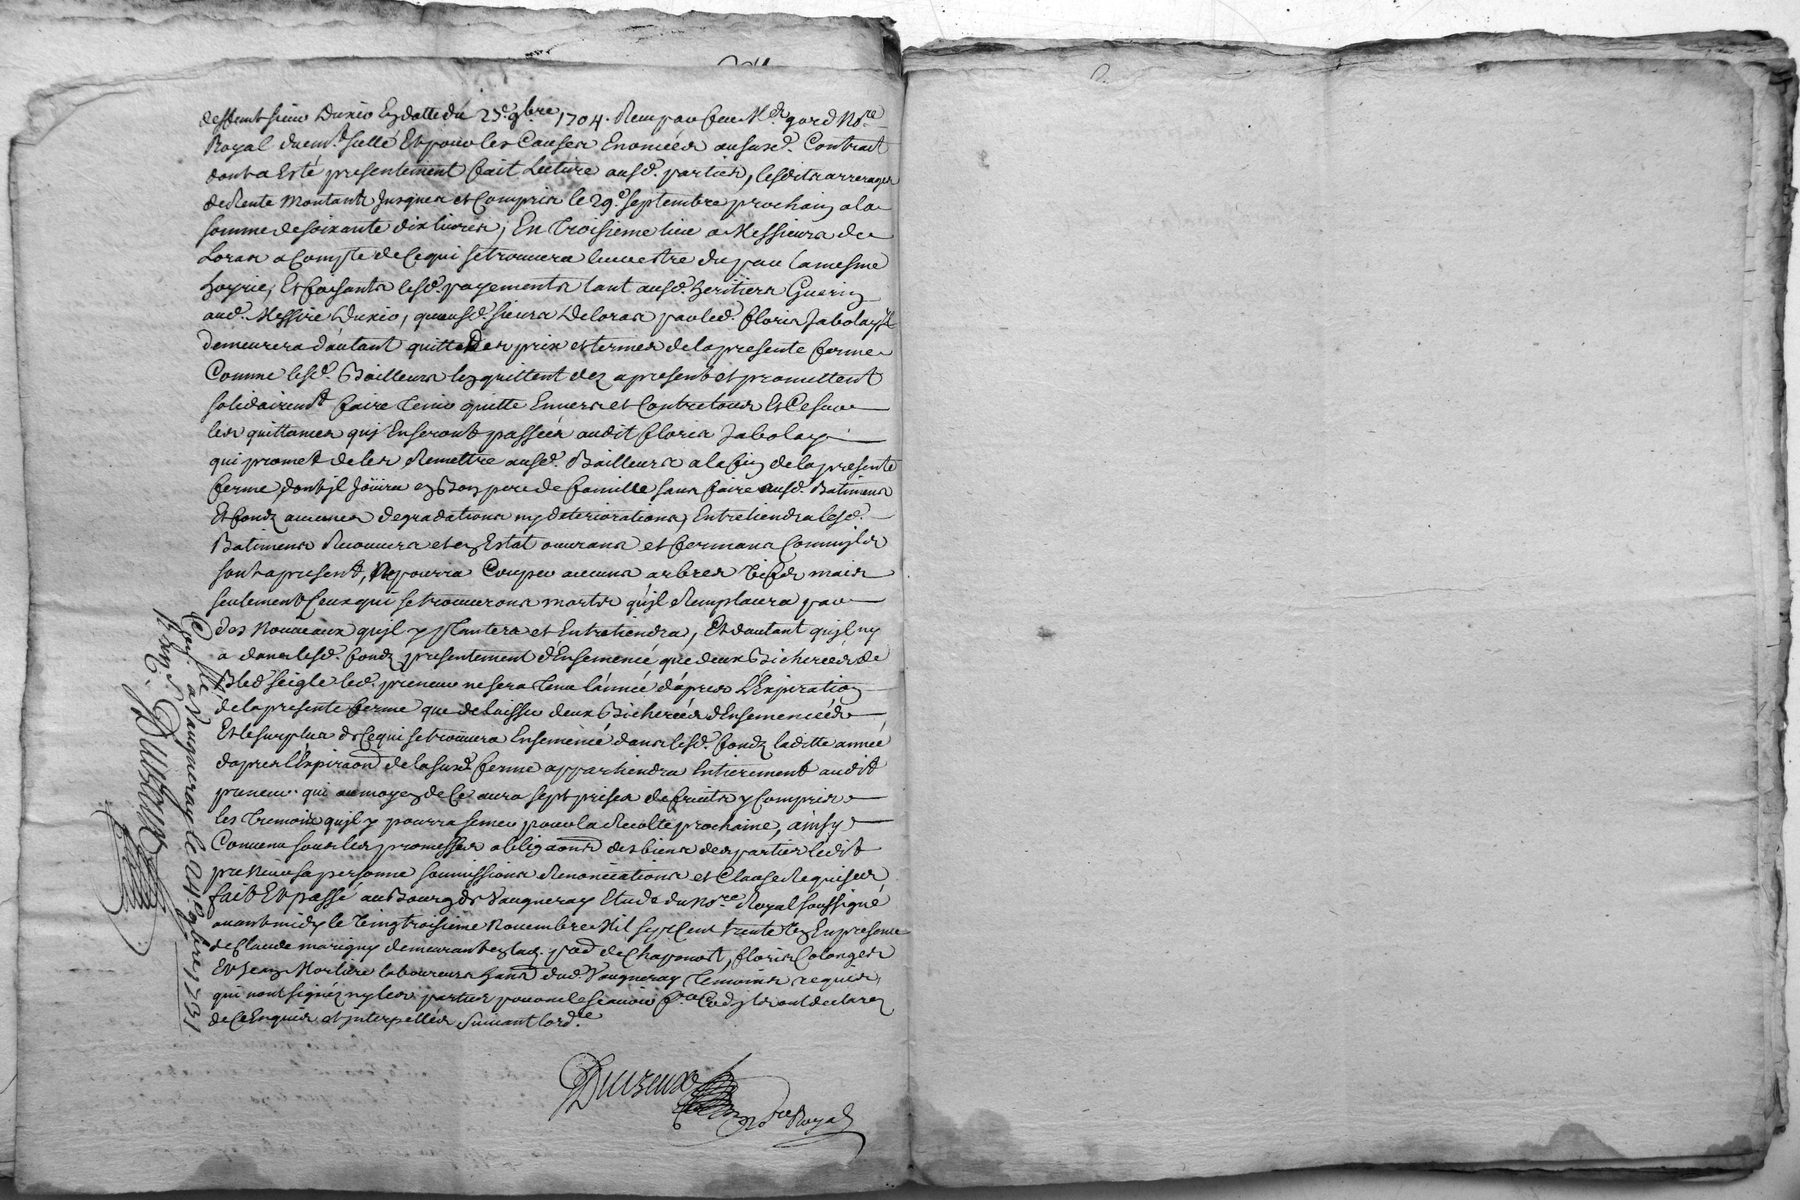 deffunt sieur Durio En datte du 25.e 9bre 1704. Receu par feu Me gord No.re
Royal du et Pour les Causes Enoncées aususd. Contrait
dont a Esté presentement fait Lecture ausd. parties, lesdits arrerages
de Rente Montants Jusques et Compris le 29.e septembre prochain a la
somme de soixante dix livres, En Troisieme lieu a Messieurs de
Loras a Compte de Ce qui se trouvera leur estre du par la mesme
hoyrie, Et faisants lesd. payements tant ausd. heritiers Guerin
aud. Messire Durio, qu'ausd. sieurs De loras par led. floris Jabolay Il
demeurera d'autant quitte Des prix et termes de la presente ferme
Comme lesd. Bailleurs l'en quittent dez a present et promettent
solidairemt faire Tenir quitte Envers et Contre tous Et Ce par
les quittances quj En seront passées audit floris Jabolay
qui promet de les Remettre ausd. Bailleurs a la fin de la presente
ferme, dont jl Joüira en Bon pere de famille sans faire ausd. Batimens
Et fondz aucunes degradations ny deteriorations, Entretiendra lesd.
Batimens Recouvers et en Estat ouvrans et fermans Comme jls
sont a present, Ne pourra Couper aucuns arbres Vifs mais
seulement Ceux qui se trouverons morts qu'jl Remplacera par
des Nouveaux qujl y plantera et Entretiendra, Et d'autant qujl ny
a dans lesd. fondz presentement d'Ensemencé que deux Bicherées de
Bled seigle led. preneur ne sera Tenu l'année d'apres L'Expiration
de la presente ferme que de laisser deux Bicherées d'Ensemencées
Et le surplus de Ce qui se trouvera Ensemencé dans lesd. fondz laditte année
d'apres l'Expiraon de la susd. ferme appartiendra Entierement audit
preneur qui au moyen de Ce aura sept prises de fruits y Compris
les Tremois qujl y pourra semer pour la Recolte prochaine, ainsy
Convenu sous les promesses obligaons des biens des parties ledit
preneur sa personne soumissions Renonciations et Clause Requises
fait Et passé au Bourg de Vaugneray Etude du No.re Royal soussigné
avant midy le Vingt troisieme Novembre Mil sept Cent trente Un En presence
de Claude marigny demeurant en lad. p. de Chaponost, floris Colonges
Et Jean Mortier laboureurs hans dud. Vaugneray Temoins requis,
qui n'ont signéz ny les parties pour ne le sçavoir jls ont declarez
de Ce Enquis et jnterpellés Suivant l'ord.ce
Ducreux
No.re Royal
Con.lle a Vaugneray le 24.e 9bre 1731
Ducreux